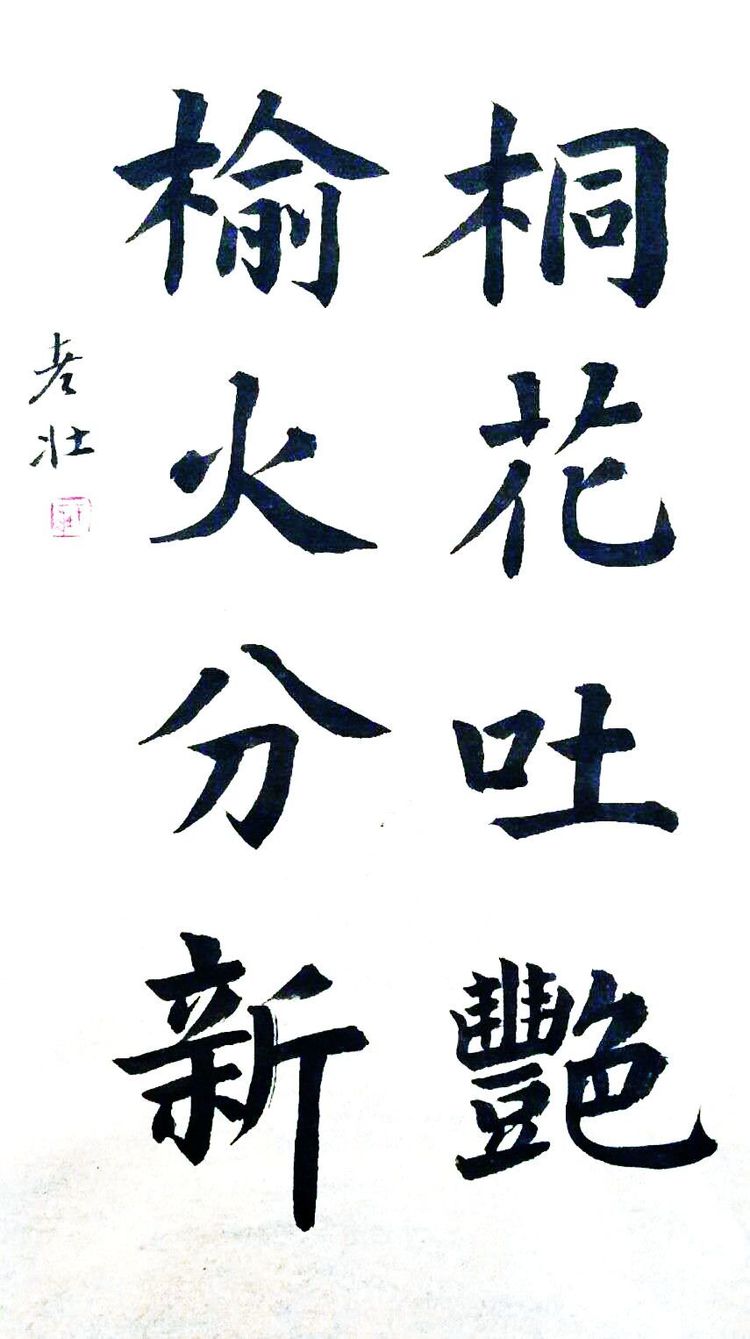 桐花吐艷
榆火分新
老壯